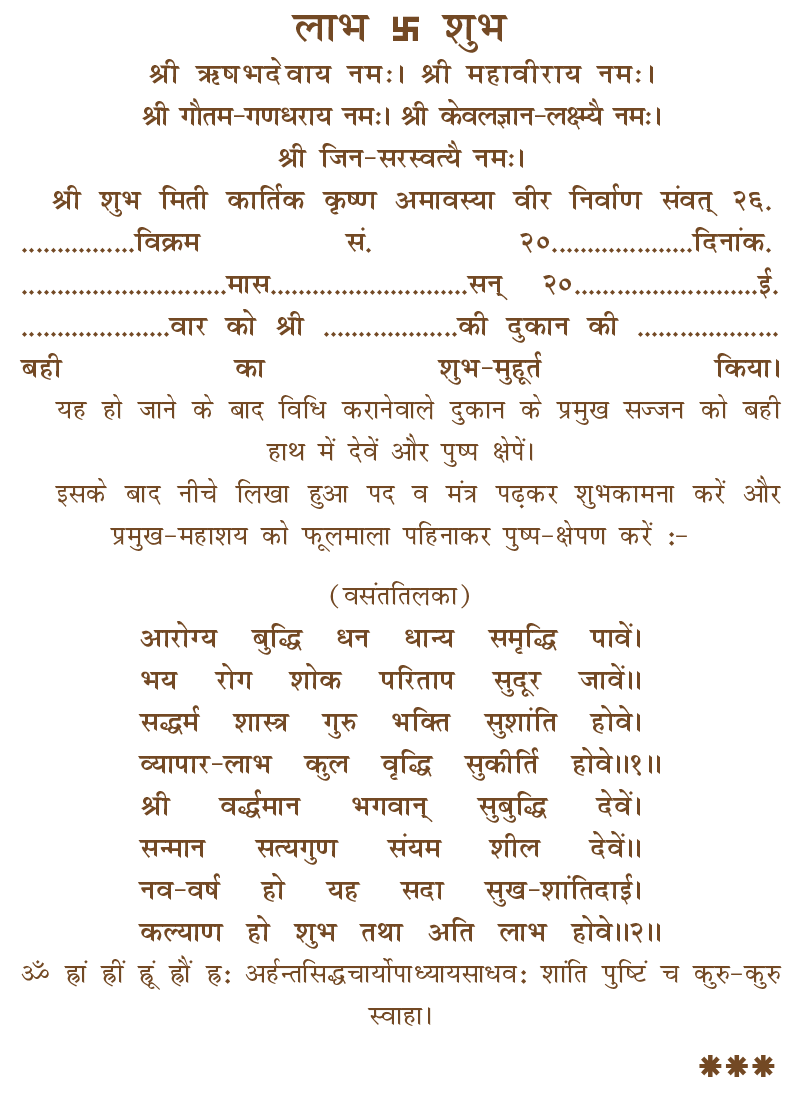 लाभ 卐 शुभ
श्री ऋषभदेवाय नमः। श्री महावीराय नमः।
श्री गौतम-गणधराय नमः। श्री केवलज्ञान-लक्ष्म्यै नमः।
श्री जिन-सरस्वत्यै नमः।
श्री शुभ मिती कार्तिक कृष्ण अमावस्या वीर निर्वाण संवत् २६.
................विक्रम सं. २०....................दिनांक.
.............................मास............................सन् २०..........................ई.
.....................वार को श्री ...................की दुकान की ....................
बही का शुभ-मुहूर्त किया।
यह हो जाने के बाद विधि करानेवाले दुकान के प्रमुख सज्जन को बही
हाथ में देवें और पुष्प क्षेपें।
इसके बाद नीचे लिखा हुआ पद व मंत्र पढ़कर शुभकामना करें और
प्रमुख-महाशय को फूलमाला पहिनाकर पुष्प-क्षेपण करें :-
(वसंततिलका)
आरोग्य बुद्धि धन धान्य समृद्धि पावें।
भय रोग शोक परिताप सुदूर जावें।।
सद्धर्म शास्त्र गुरु भक्ति सुशांति होवे।
व्यापार-लाभ कुल वृद्धि सुकीर्ति होवे।।१।।
श्री वर्द्धमान भगवान् सुबुद्धि देवें।
सन्मान सत्यगुण संयम शील देवें।।
नव-वर्ष हो यह सदा सुख-शांतिदाई।
कल्याण हो शुभ तथा अति लाभ होवे।।२।।
ॐ ह्रां ह्रीं ह्रूं ह्रौं ह्र: अर्हन्तसिद्धचार्योपाध्यायसाधव: शांति पुष्टिं च कुरु-कुरु
स्वाहा।
***